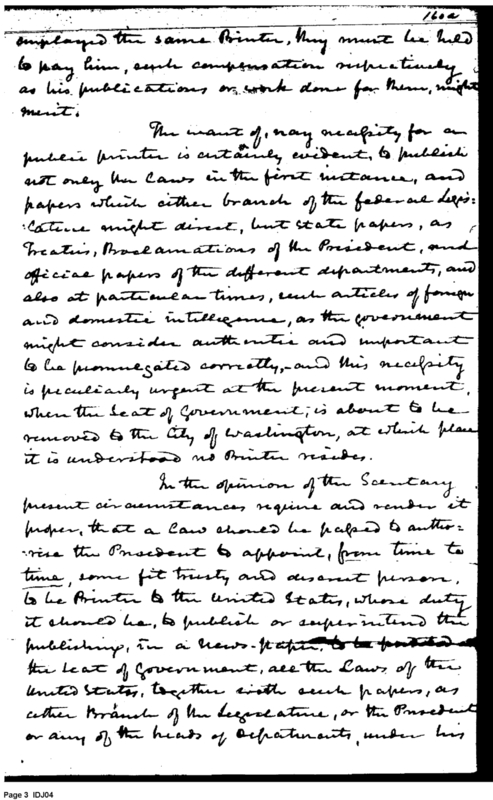 160a
employed the same Printer, they must be held
to pay him, such compensation respectively
as his publications or work done for them, might
merit.
The want of, nay necessity for a
public printer is certainly evident, to publish
not only the Laws in the first instance, and
papers which either branch of the federal Legis-
:lature might direct, but state papers, as
Treaties, Proclamations of the President, and
official papers of the different departments, and
also at particular times, such articles of foreign
and domestic intelligence, as the government
might consider authentic and important
to be promulgated correctly,- and this necessity
is peculiarly urgent at the present moment,
when the Seat of Government, is about to be
removed to the City of Washington, at which place
it is understood no Printer resides.
In the opinion of the Secretary
present circumstances require and render it
proper, that a Law should be passed to autho-
-rise the President to appoint, from time to
time, some fit trusty and discreet person,
to be Printer to the United States, whose duty
it should be, to publish or superintend the
publishing, in a News-paper
the Seat of Government, all the Laws of the
United States, together with such papers, as
either Branch of the Legislature, or the President
or any of the heads of Departments, under his
Page 3 IDJ04